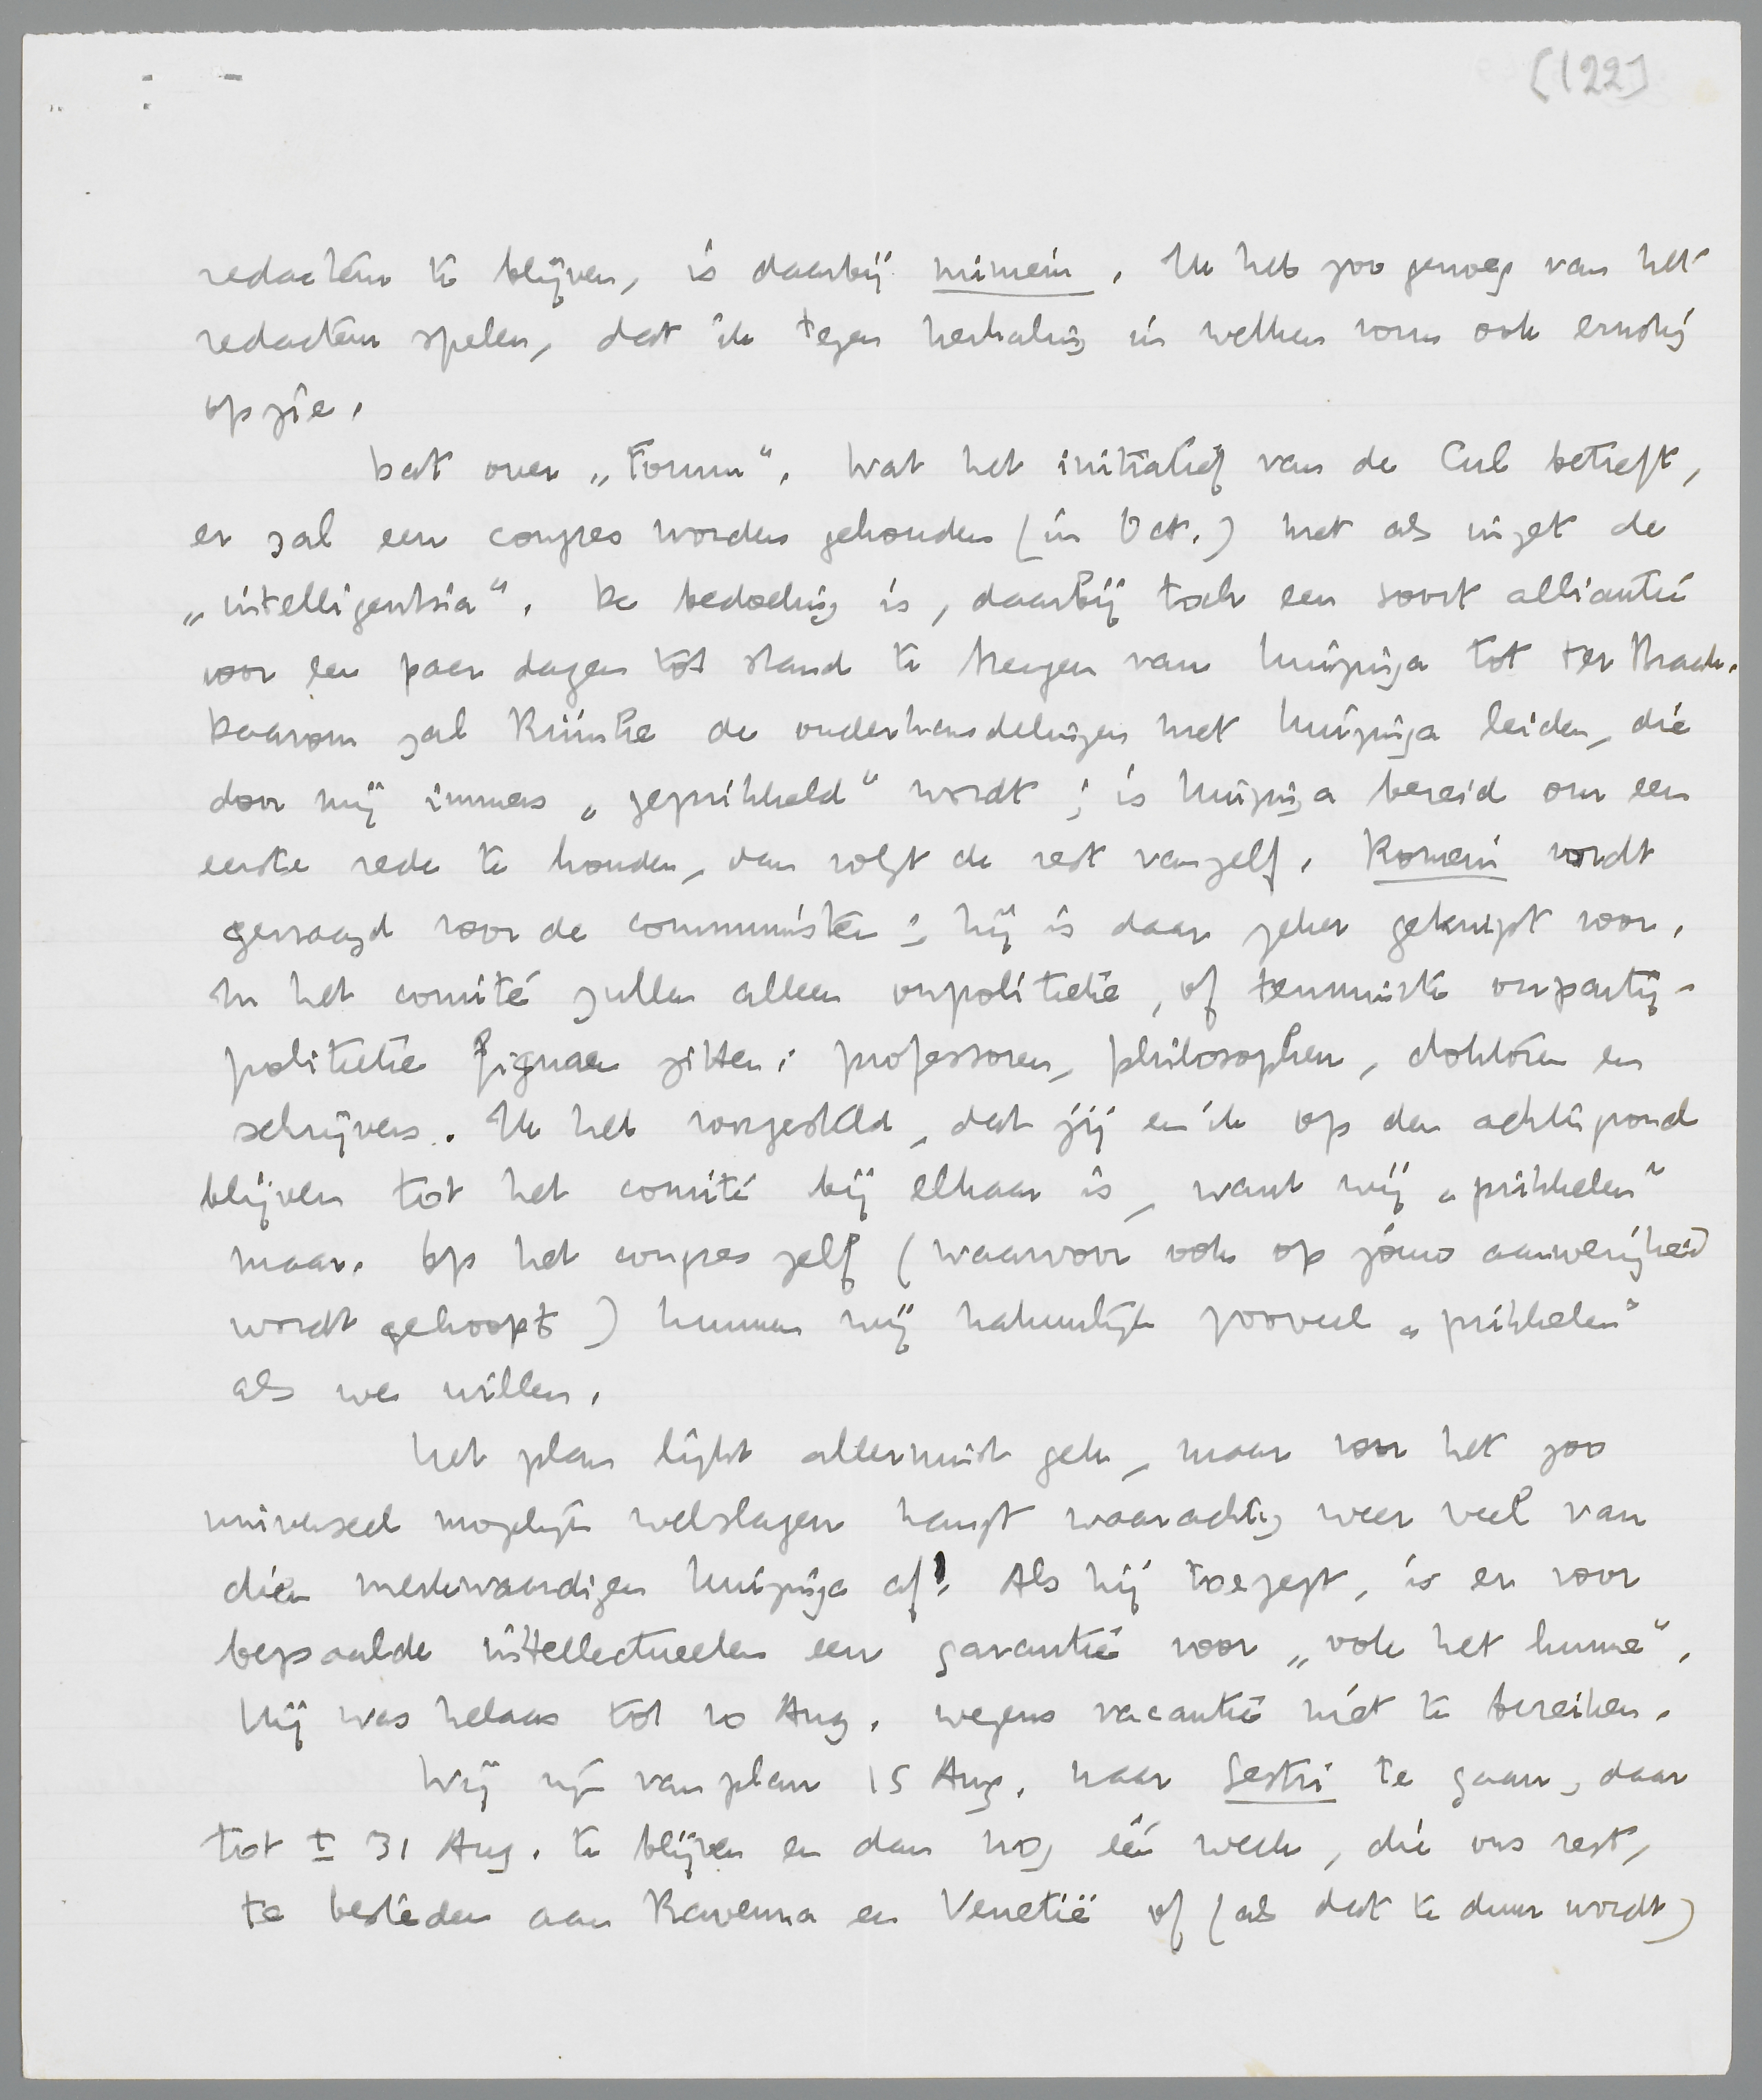 [122]
redacteur te blijven, is daarbij miniem. Ik heb zoo genoeg van het
redacteur spelen, dat ik tegen herhaling in welken vorm ook ernstig
opzie.
Dat over „Forum". Wat het initiatief van de Cub betreft,
er zal een congres worden gehouden (in Oct.) met als inzet de
„intelligentsia". De bedoeling is, daarbij toch een soort alliantie
voor een paar dagen tot stand te brengen van Huizinga tot ter Braak.
Daarom zal Rümke de onderhandelingen met Huizinga leiden, die
door mij immers „geprikkeld" wordt; is Huizinga bereid om een
eerste rede te houden, dan volgt de rest vanzelf. Romein wordt
gevraagd voor de communisten; hij is daar zeker geknipt voor.
In het comité zullen alleen onpolitieke, of tenminste onpartij-
politieke figuren zitten: professoren, philosophen, doktoren en
schrijvers. Ik heb voorgesteld, dat jij en ik op den achtergrond
blijven tot het comité bij elkaar is, want wij „prikkelen"
maar. Op het congres zelf (waarvoor ook op jouw aanwezigheid
wordt gehoopt) kunnen wij natuurlijk zooveel „prikkelen"
als we willen.
Het plan lijkt allerminst gek, maar voor het zoo
universeel mogelijk welslagen hangt waarachtig weer veel van
dien merkwaardigen Huizinga af! Als hij toezegt, is er voor
bepaalde intellectueelen een garantie voor „ook het hunne".
Hij was helaas tot 10 Aug. wegens vacantie niet te bereiken.
Wij zijn van plan 15 Aug. naar Sestri te gaan, daar
tot ± 31 Aug. te blijven en dan nog één week, die ons rest,
te besteden aan Ravenna en Venetië of (als dat te duur wordt)